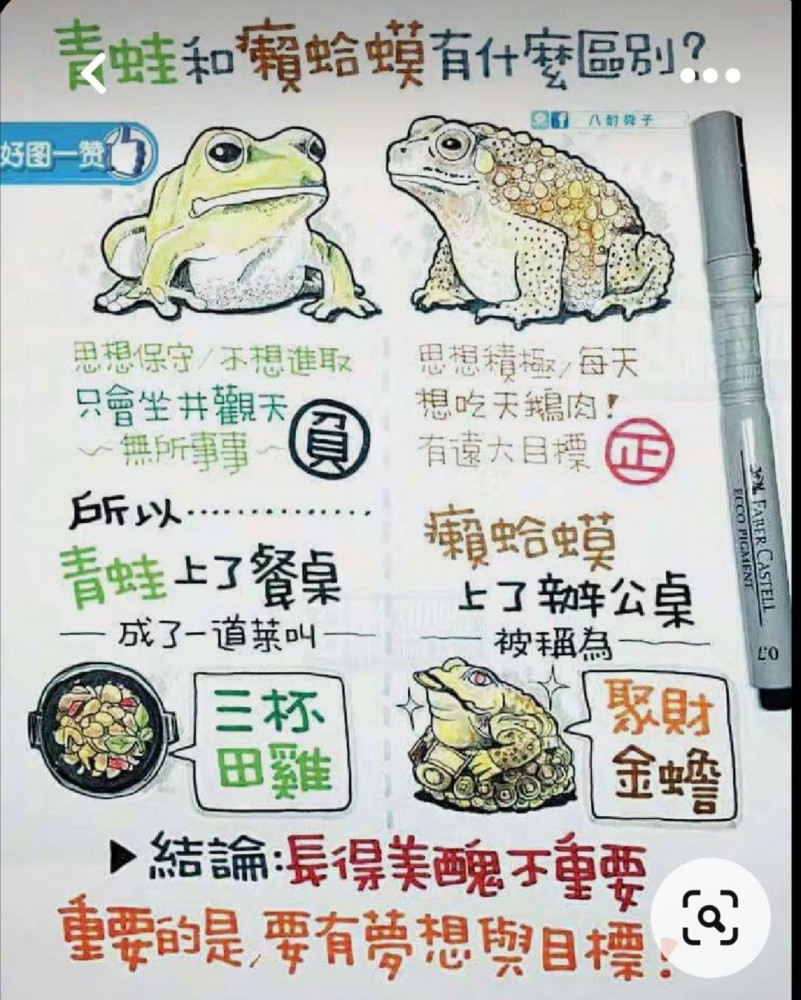 青蛙和癩蛤蟆有什麼區別?
好图一赞
八耐舜子
思想保守/不想進取
只會坐井觀天
～無所事事～
負
思想積極/每天
想吃天鵝肉!
有遠大目標
正
所以............
青蛙上了餐桌
成了一道菜叫
三杯
田雞
癩蛤蟆
上了辦公桌
被稱為
聚財
金蟾
FABER CASTELL
ECCO PIGMENT
0.7
▶結論:長得美醜不重要
重要的是,要有夢想與目標!